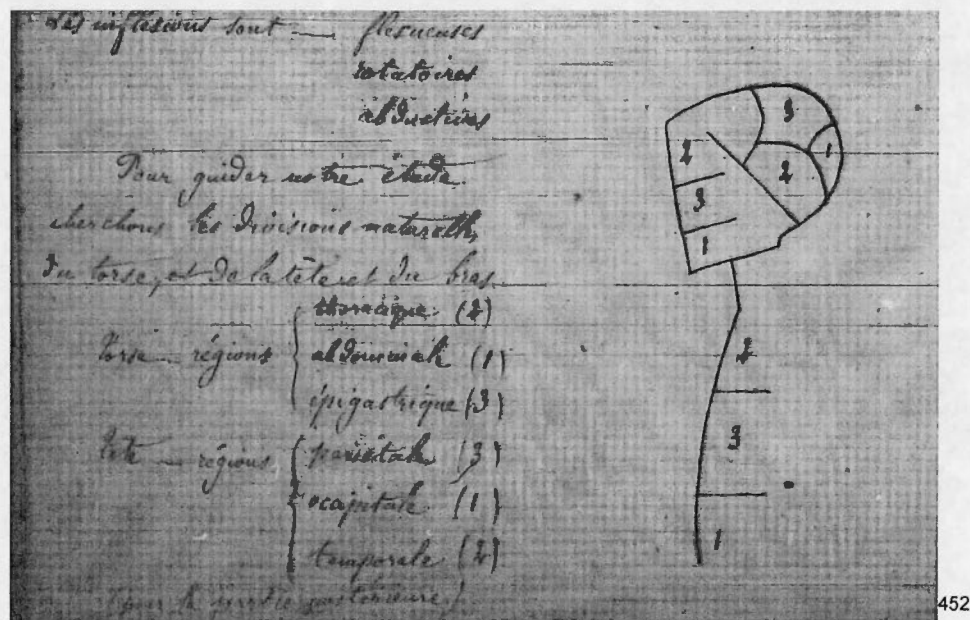 Les inflexions sont — flexueuses
rotatoires
abductives
Pour guider notre étude
cherchons les divisions naturelles
du torse, et de la tête et du bras.
Torse — régions
thoracique (2)
abdominale (1)
épigastrique (3)
tête — régions
pariétale (3)
occipitale (1)
temporale (2)
(pour la partie postérieure)
3
1
2
2
3
1
2
3
1
452